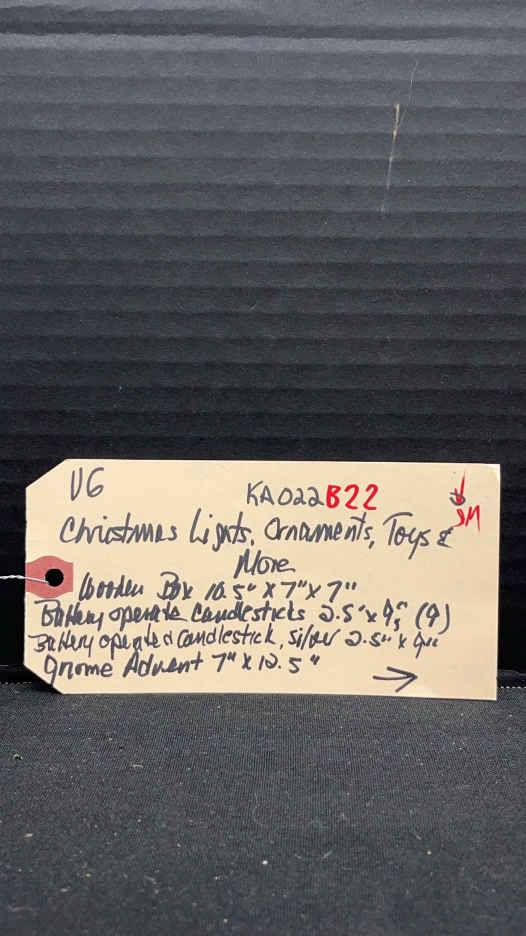 VG
KA022B22
SM
Christmas Lights, Ornaments, Toys &
More
Wooden Box 10.5" x 7" x 7"
Battery operate Candlesticks 2.5" x 9.5" (9)
Battery operated Candlestick, silver 2.5" x 9"
Gnome Advent 7" x 12.5"